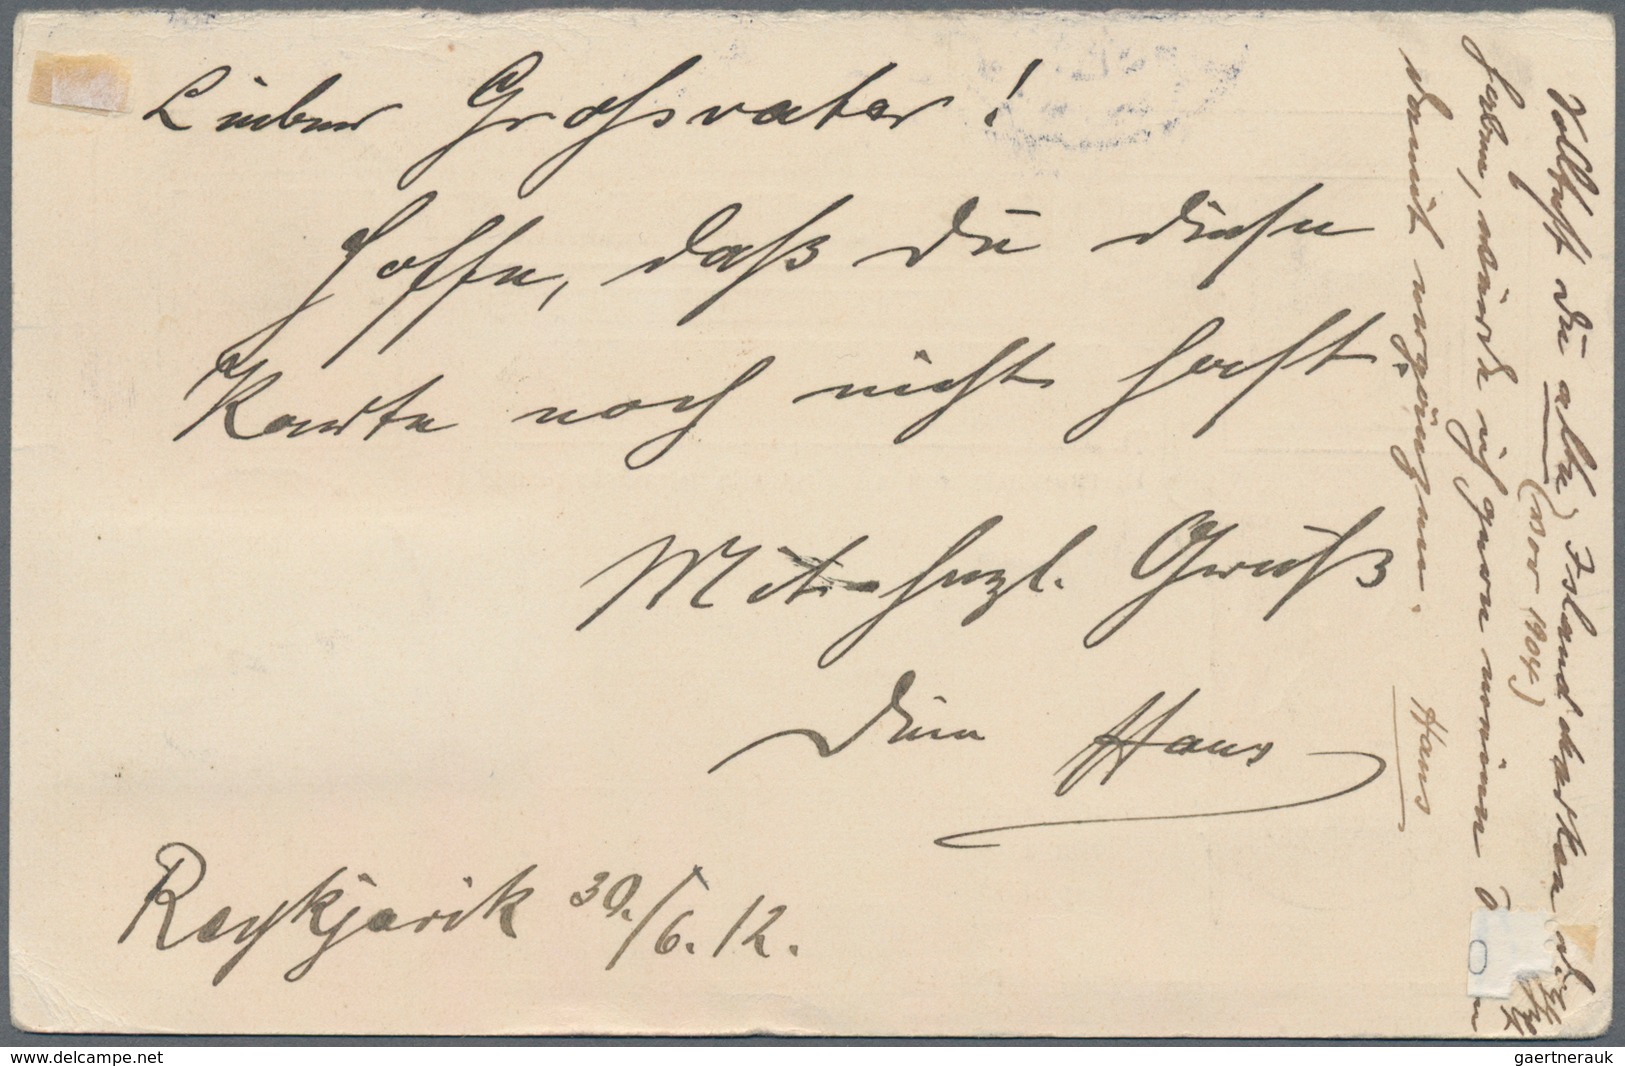 Lieber Grossvater!
Hoffe, daß Du diese
Karte noch nicht hast.
Mit herzl. Gruß
Dein Hans
Reykjavik 30./6.12.
Solltest Du alte Islandmarken
(vor 1904)
haben, würde ich gern meine
damit ergänzen.
Hans
delcampe.net
gaertnerauk